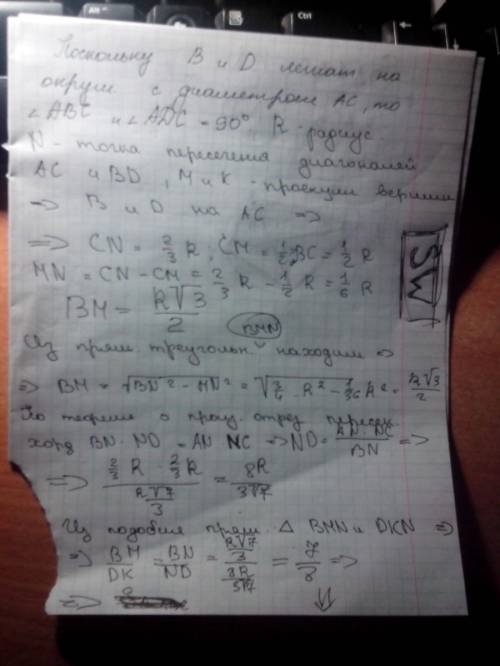 Поскольку B и D лежат на
окруж с диаметром AC, то
∠ABC и ∠ADC = 90° R - радиус
N - точка пересечения диагоналей
AC и BD, M и K - проекции вершин
=> B и D на AC =>
=> CN = 2/3 R; CM = 1/2 BC = 1/2 R
MN = CN - CM = 2/3 R - 1/2 R = 1/6 R
BM = R√3/2
SW
BMN
Из прям. треугольн. находим =>
=> BM = √(BN² - MN²) = R√3/2
По теореме о произ. отрез. пересек.
хорд BN · ND = AN · NC => ND = AN · NC/BN =>
=> (2/3 R · 2/3 R)/(R√7/3) = 8R/3√7
Из подобия прям. △ BMN и DKN =>
=> BM/DK = BN/ND = (R√7/3)/(8R/3√7) = 7/8 =>
=>
⇓